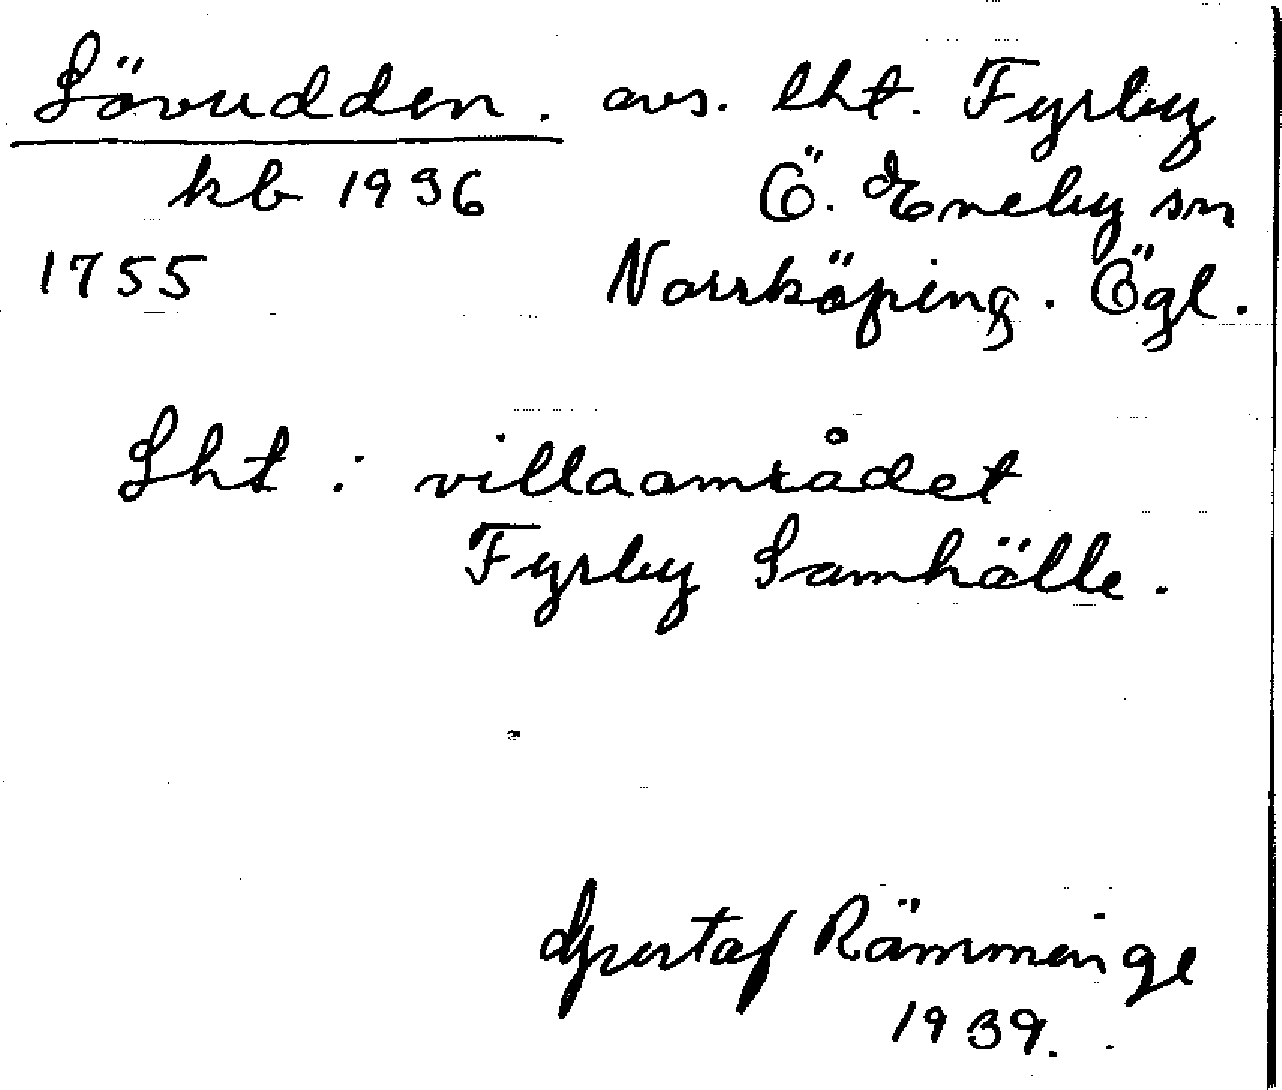 Lövudden. avs. lht. Fyrby
kb 1936 Ö. Eneby sn
1755 Norrköping. Ögl.
Lht: villaområdet
Fyrby Samhälle.
Gustaf Rämminge
1939.